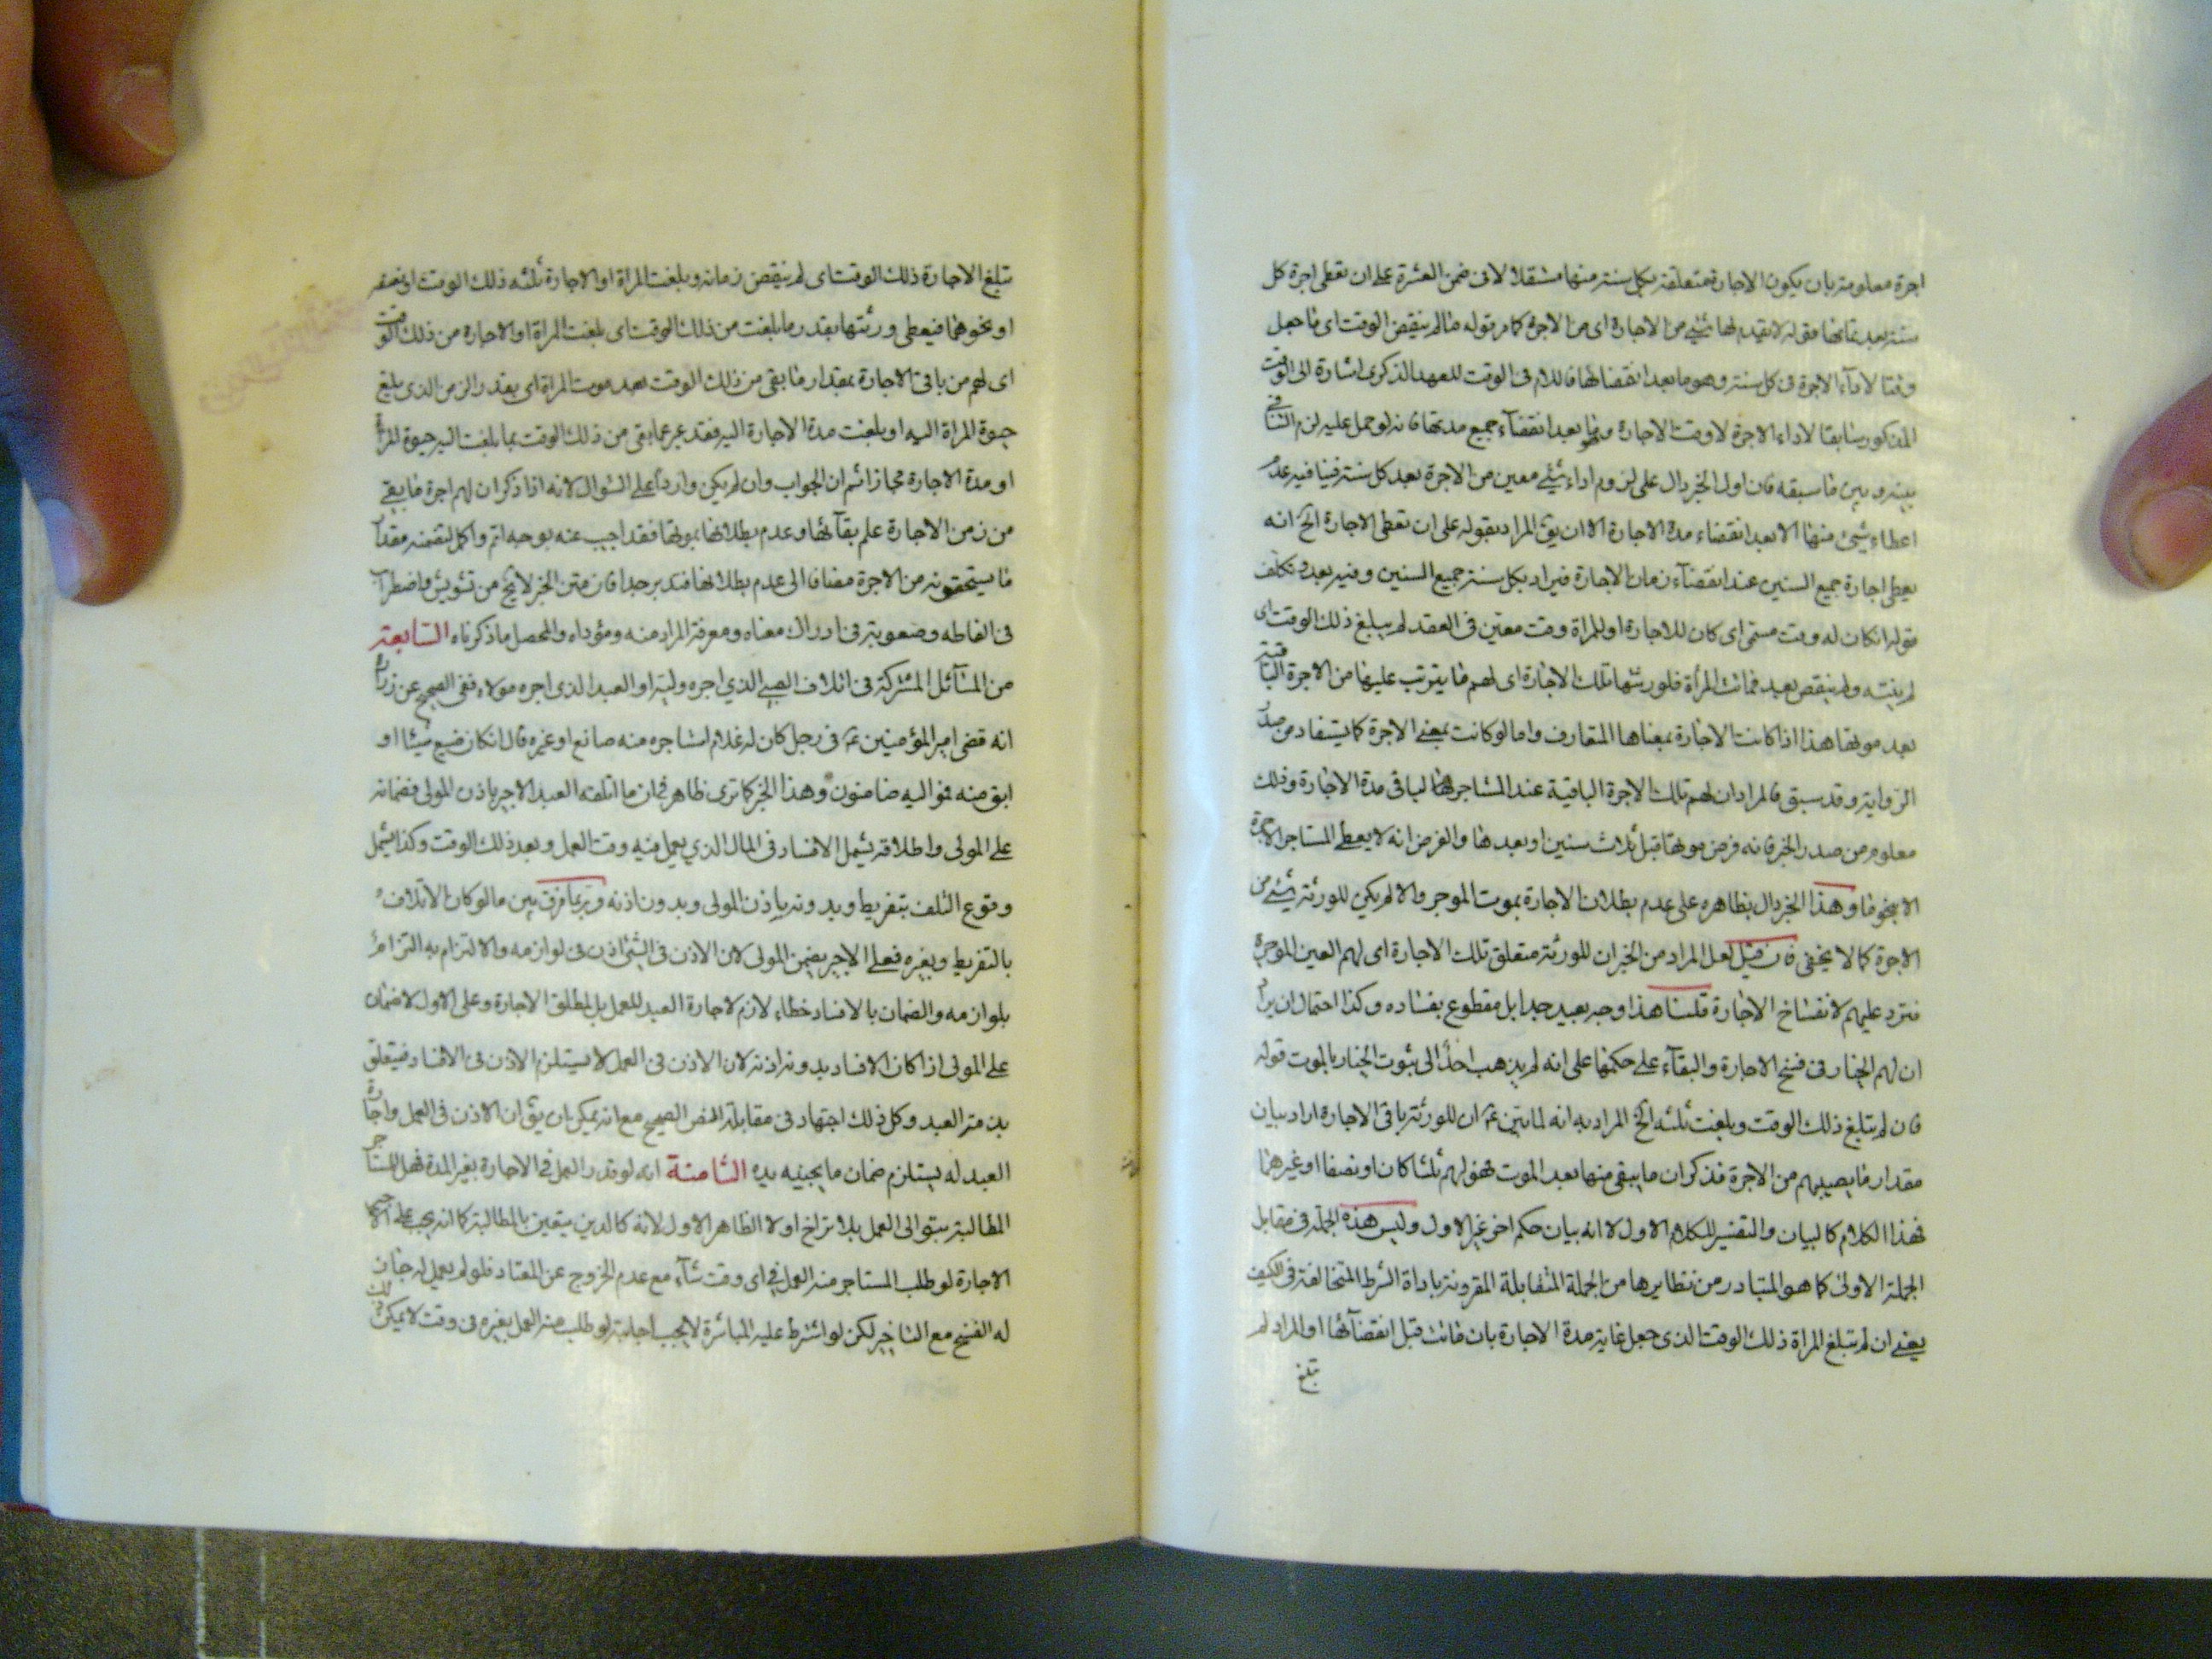 اجرة معلومة بان يكون الاجارة متعلقة بكل سنة منها مستقلا لا فى ضمن العشرة على ان تعطى اجرة كل
سنة بعد تمامها فقوله لا يقدم لها شئ من الاجارة اى من الاجرة كما مر قوله ما لم ينقض الوقت اى ما جعل
وقتا لاداء الاجرة فى كل سنة وهو ما بعد انقضائها فاللام فى الوقت للعهد الذكرى اشارة الى الوقت
المذكور سابقا لاداء الاجرة لا وقت الاجارة وهو ما بعد انقضاء جميع مدتها فانه لو حمل عليه لزم التنافى
بينه وبين ما سبقه فان اول الخبر دال على لزوم اداء شئ معين من الاجرة بعد كل سنة فينافيه عدم
اعطاء شئ منها الا بعد انقضاء مدة الاجارة الا ان يق المراد بقوله على ان تعطى الاجارة الخ انه
يعطى اجارة جميع السنين عند انقضاء زمان الاجارة فيراد بكل سنة جميع السنين وفيه بعد وتكلف
قوله ان كان له وقت مسمى اى كان للاجارة او للمراة وقت معين فى العقد لم يبلغ ذلك الوقت اى
لم ينته ولم ينقض بعد فماتت المرأة فلورثتها تلك الاجارة اى لهم ما يترتب عليها من الاجرة الباقية
بعد موتها هذا اذا كانت الاجارة بمعناها المتعارف واما لو كانت بمعنى الاجرة كما يستفاد من صدر
الرواية وقد سبق فالمراد ان لهم تلك الاجرة الباقية عند المستاجر لباقى مدة الاجارة وذلك
معلوم من صدر الخبر فانه فرض موتها قبل ثلاث سنين او بعدها والفرض انه لا يعطى المستاجر الاجرة
الا بنحو ما وهذا الخبر دال بظاهره على عدم بطلان الاجارة بموت الموجر والا لم يكن للورثة شئ من
الاجرة كما لا يخفى فان قيل لعل المراد من الخبر ان للورثة متعلق تلك الاجارة اى لهم العين الموجرة
فترد عليهم لانفساخ الاجارة قلنا هذا وجه بعيد جدا بل مقطوع بفساده وكذا احتمال ان يراد
ان لهم الخيار فى فسخ الاجارة والبقاء على حكمها على انه لم يذهب احد الى ثبوت الخيار بالموت قوله
فان لم تبلغ ذلك الوقت وبلغت ثلثه الخ المراد به انه لما بين ع ان للورثة باقى الاجارة اراد بيان
مقدار ما يصيبهم من الاجرة فذكر ان ما يبقى منها بعد الموت فهو لهم ثلثا كان او نصفا او غيرهما
فهذا الكلام كالبيان والتفسير للكلام الاول لا انه بيان حكم اخر غير الاول وليس هذه الجملة فى مقابل
الجملة الاولى كما هو المتبادر من نظايرها من الجملة المتقابلة المقرونة باداة الشرط المتخالفة فى الكيف
يعنى ان لم تبلغ المراة ذلك الوقت الذى جعل غاية مدة الاجارة بان ماتت قبل انقضائها او المراد لم
تبلغ
تبلغ الاجارة ذلك الوقت اى لم ينقض زمانه وبلغت المراة او الاجارة ثلثه ذلك الوقت او نصفه
او نحوهما فيعطى ورثتها بقدر ما بلغت من ذلك الوقت اى بلغت المراة او الاجارة من ذلك الوقت
اى لهم من باقى الاجارة بمقدار ما بقى من ذلك الوقت بعد موت المراة اى بقدر الزمن الذى بلغ
حيوة المراة اليه او بلغت مدة الاجارة اليه فقد عبر عما بقى من ذلك الوقت بما بلغت اليه حيوة المراة
او مدة الاجارة مجازا ثم ان الجواب وان لم يكن واردا على السؤال لانه اذا ذكر ان لهم اجرة ما بقى
من زمن الاجارة علم بقائها وعدم بطلانها بموتها فقد اجيب عنه بوجه اتم واكمل لتضمنه مقدار
ما يستحقونه من الاجرة مضافا الى عدم بطلانها فتدبر جدا فان متن الخبر لا يخ من تشويش واضطراب
فى الفاظه وصعوبة فى ادراك معناه ومعرفة المراد منه ومؤداه والمحصل ما ذكرناه السابعة
من المسائل المشتركة فى اتلاف الصبى الذي اجره وليه او العبد الذى اجره مولاه ففى الصحيح عن زرارة
انه قضى امير المؤمنين ع فى رجل كان له غلام استاجره منه صانع او غيره قال ان كان ضيع شيئا او
ابق منه فمواليه ضامنون وهذا الخبر كما ترى ظاهر فى ان ما اتلفه العبد الاجير باذن المولى فضمانه
على المولى واطلاقه يشمل الافساد فى المال الذي يعمل فيه وقت العمل وبعد ذلك الوقت وكذا يشمل
وقوع التلف بتفريط وبدونه باذن المولى وبدون اذنه وربما فرق بين ما لو كان الاتلاف
بالتفريط وبغيره فعلى الاجير يضمن المولى لان الاذن فى الشئ اذن فى لوازمه والالتزام به التزام
بلوازمه والضمان بالافساد خطاء لازم لاجارة العبد للعمل بل لمطلق الاجارة وعلى الاول لا ضمان
على المولى اذا كان الافساد بدون اذنه لان الاذن فى العمل لا يستلزم الاذن فى الافساد فيتعلق
بذمة العبد وكل ذلك اجتهاد فى مقابلة النص الصحيح مع انه يمكن بان يق ان الاذن فى العمل واجارة
العبد له يستلزم ضمان ما يجنيه يده الثامنة انه لو قدر العمل فى الاجارة بغير المدة فهل للمستاجر
المطالبة بتوالى العمل بلا تراخ او لا الظاهر الاول لانه كالدين يتعين بالمطالبة كما انه يجب على
الاجارة لو طلب المستاجر منه العمل فى اى وقت شاء مع عدم الخروج عن المعتاد فلو لم يعمل له جاز
له الفسخ مع التاخير لكن لو اشترط عليه المباشرة لا يجب اجابته لو طلب منه العمل بغيره فى وقت لا يمكن